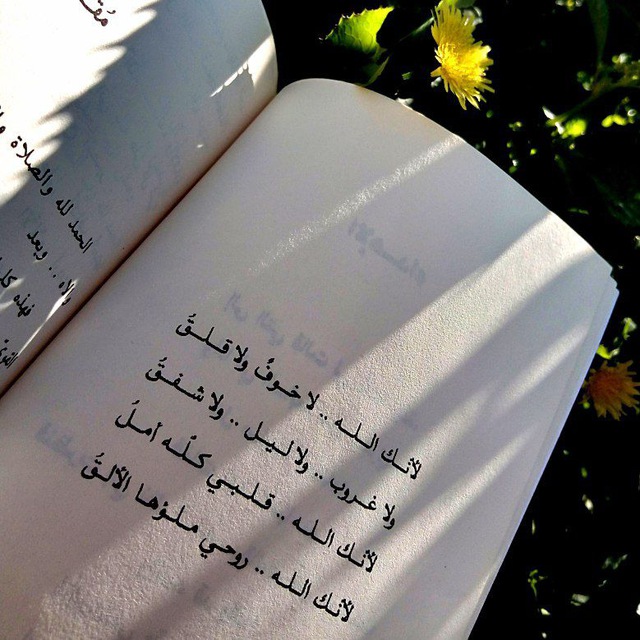 الحمد لله والصلاة
وبعد
لأنك الله .. لا خوفٌ ولا قلقُ
ولا غروب .. ولا ليل .. ولا شفقُ
لأنك الله .. قلبي كلّه أملُ
لأنك الله .. روحي ملؤها الألقُ